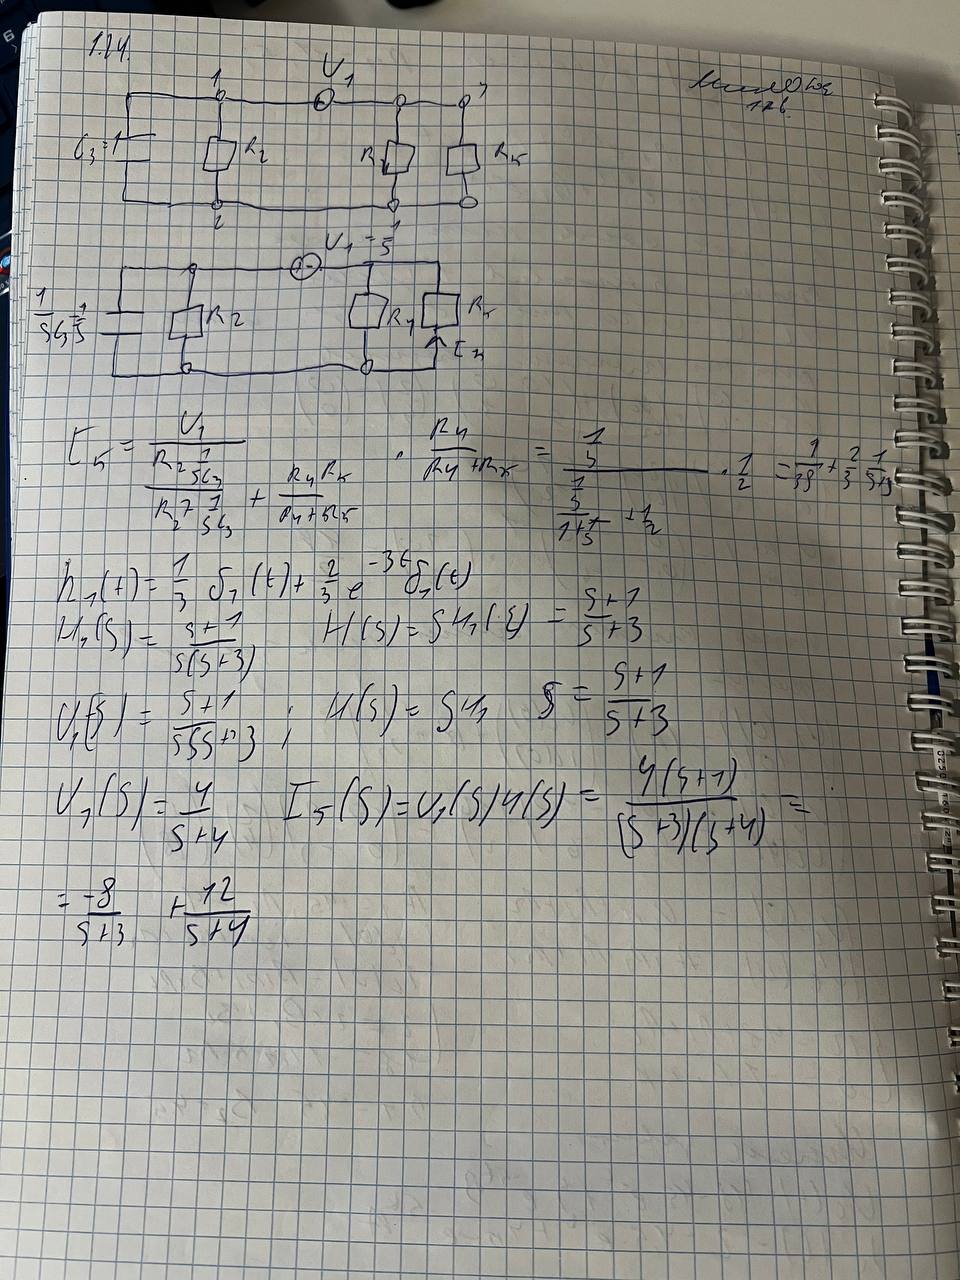 1.24.
1 U₁ 3
C₃=1 R₂ R₄ R₅
2
U₁ = 1/s
1/sC₃ = 1/s R₂ R₄ R₅
I₅
I₅ = U₁ / (R₂ 1/sC₃ / (R₂ + 1/sC₃) + R₄R₅ / (R₄+R₅)) · R₄ / (R₄+R₅) = 1/s / (1/s / (1+1/s) + 1/2) · 1/2 = 1/3s + 2/3 1/s+3
h₁(t) = 1/3 δ₁(t) + 2/3 e^-3t δ₁(t)
H₁(s) = s+1 / s(s+3) H(s) = s H₁(s) = s+1 / s+3
U₁(s) = s+1 / s(s+3 ; H(s) = s H₁ s = s+1 / s+3
U₁(s) = 4 / s+4 I₅(s) = U₁(s) H(s) = 4(s+1) / (s+3)(s+4) =
= -8 / s+3 + 12 / s+4